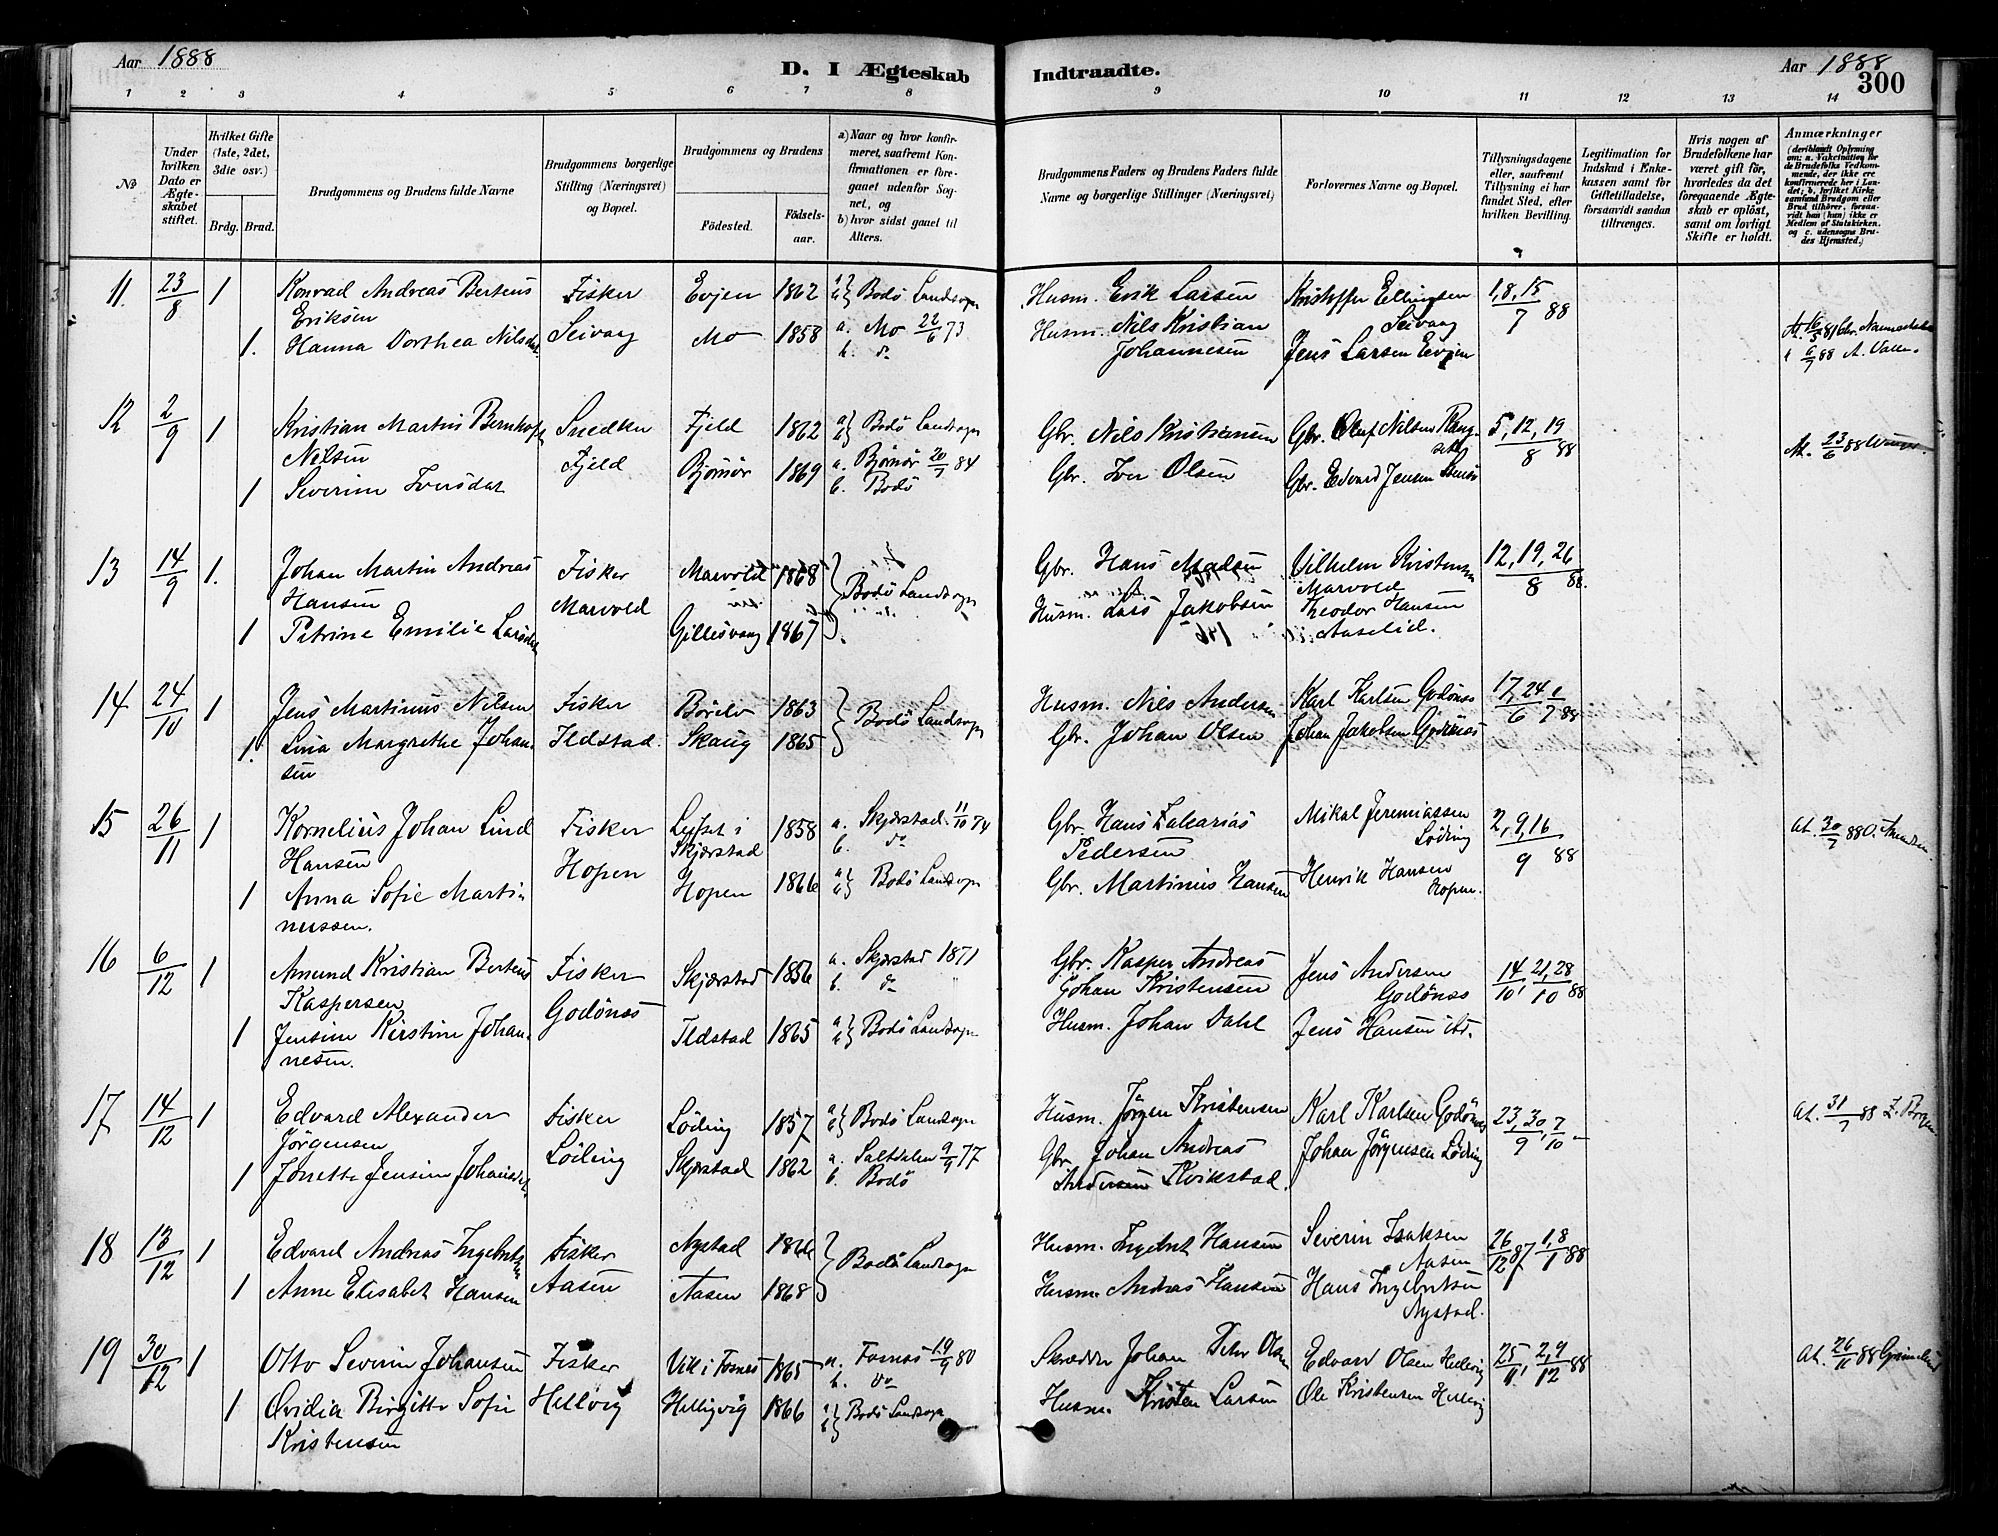 Aar 1888
D. I Ægteskab Indtraadte.
Aar 1888
300
1 2 3 4 5 6 7 8 9 10 11 12 13 14
No
Under hvilken Dato er Ægteskabet stiftet.
Hvilket Gifte (1ste, 2det, 3die osv.)
Brdg. Brud.
Brudgommens og Brudens fulde Navne
Brudgommens borgerlige Stilling (Næringsvei) og Bopæl.
Brudgommens og Brudens
Fødested. Fødselsaar.
a) Naar og hvor konfirmeret, saafremt Konfirmationen er foregaaet udenfor Sognet, og
b) hvor sidst gaaet til Alters.
Brudgommens Faders og Brudens Faders fulde Navne og borgerlige Stillinger (Næringsvei)
Forlovernes Navne og Bopæl.
Tillysningsdagene eller, saafremt Tillysning ei har fundet Sted, efter hvilken Bevilling.
Legitimation for Indskud i Enkekassen samt for Giftetilladelse, forsaavidt saadan tiltrænges.
Hvis nogen af Brudefolkene har været gift før, hvorledes da det foregaaende Ægteskab er opløst, samt om lovligt Skifte er holdt.
Anmærkninger (deriblandt Oplysning om: a. Vakcination for de Brudefolks Vedkommende, der ikke ere konfirmerede her i Landet; b. hvilket Kirkesamfund Brudgom eller Brud tilhører, forsaavidt han (hun) ikke er Medlem af Statskirken, og c. udensogns Brudes Hjemsted.)
11. 23/8 1 Konrad Andreas Berteus Eriksen Fisker Seivaag Evjen 1862 a b} Bodø Landsogn Husm. Erik Larsen Kristoffer Ellingsen Seivaag 1, 8, 15/7 88
1. Hanna Dorthea Nilsdat. Mo 1858 a. Mo 22/6 73 b. do Husm. Nils Kristian Johannesen Jens Larsen Evjen
12 2/9 1 Kristian Martin Nilsen Snedker Fjeld Fjeld 1862 a b} Bodø Landsogn Gbr. Nils Kristiansen Gbr. Oluf Nilsen 5, 12, 19/8 88 At. 23/6 88
1 Severine Iversdat Bjørnør 1869 a. Bjørnør 20/7 84 b. Bodø Gbr. Iver Olsen Gbr. Edvard Jensen
13 14/9 1. Johan Martin Andreas Hansen Fisker Marvold Marvold 1868 } Bodø Landsogn Gbr. Hans Madsen Vilhelm Kristensen Marvold 12, 19, 26/8 88.
1 Petrine Emilie Larsdat Gillesvaag 1867 Husm. Lars Jakobsen Theodor Hansen Aaselid.
14 24/10 1 Jens Martinus Nilsen Fisker Ildstad. Børelv 1863 } Bodø Landsogn Husm. Nils Andersen Karl Karlsen Godønæs 17, 24/6 1/7 88
1. Lina Margrethe Johansen Skaug 1865 Gbr. Johan Olsen Johan Jakobsen Godønæs
15 26/11 1 Kornelius Johan Lind Hansen Fisker Hopen i Skjærstad 1858 a. Skjærstad 11/10 74 b. do Gbr. Hans Zakarias Pedersen Mikal Jeremiassen Løding 2, 9, 16/9 88 At. 30/7 88
1 Anna Sofie Martinussen. Hopen 1866 a b} Bodø Landsogn Gbr. Martinus Hansen Henrik Hansen Hopen.
16 6/12 1 Amund Kristian Berteus Kaspersen Fisker Godønæs Skjærstad 1856 a. Skjærstad 1871 b. do Gbr. Kasper Andreas Johan Kristensen Jens Andersen Godønæs 14/10, 21, 28/10 88
1 Jensine Kirstine Johannesen. Ildstad 1865 a b} Bodø Landsogn Husm. Johan Dahl Jens Hansen ibd.
17 14/12 1 Edvard Alexander Jörgensen Fisker Løding Løding 1857 a b} Bodø Landsogn Husm. Jörgen Kristensen Karl Karlsen Godønæs 23, 30/9, 7/10 At. 31/7 88
1 Jonette Jensine Johansdat. Skjærstad 1862 a. Saltdalen 9/9 77 b. Bodø Gbr. Johan Andreas Andersen Kvikstad. Johan Jörgensen Løding
18 13/12 1 Edvard Andreas Ingebrigtsen Fisker Aasen Nystad 1866 } Bodø Landsogn Husm. Ingebrit Hansen Severin Isaksen Aasen 26/12 87, 1, 8/1 88
1 Anne Elisabet Hansen Aasen 1868 Husm. Andreas Hansen Hans Ingebritsen Nystad.
19 30/12 1 Otto Severin Johansen Fisker Hellvig Vik i Fosnes 1865 a. Fosnæs 19/9 80 b. do Skrædder Johan Peter Olsen Edvard Olsen Hellvig 25/11, 2, 9/12 88 At. 26/11 88
1 Ovidia Birgitte Sofie Kristensen Helligvig 1866 a b} Bodø Landsogn Husm. Kristen Larsen Ole Kristensen Hellvig